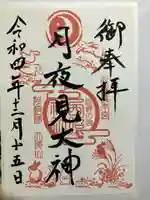 御奉拝
月夜見大神
令和四年十二月十五日